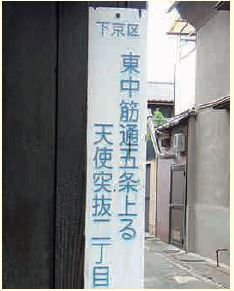 下京区
東中筋通五条上る
天使突抜二丁目